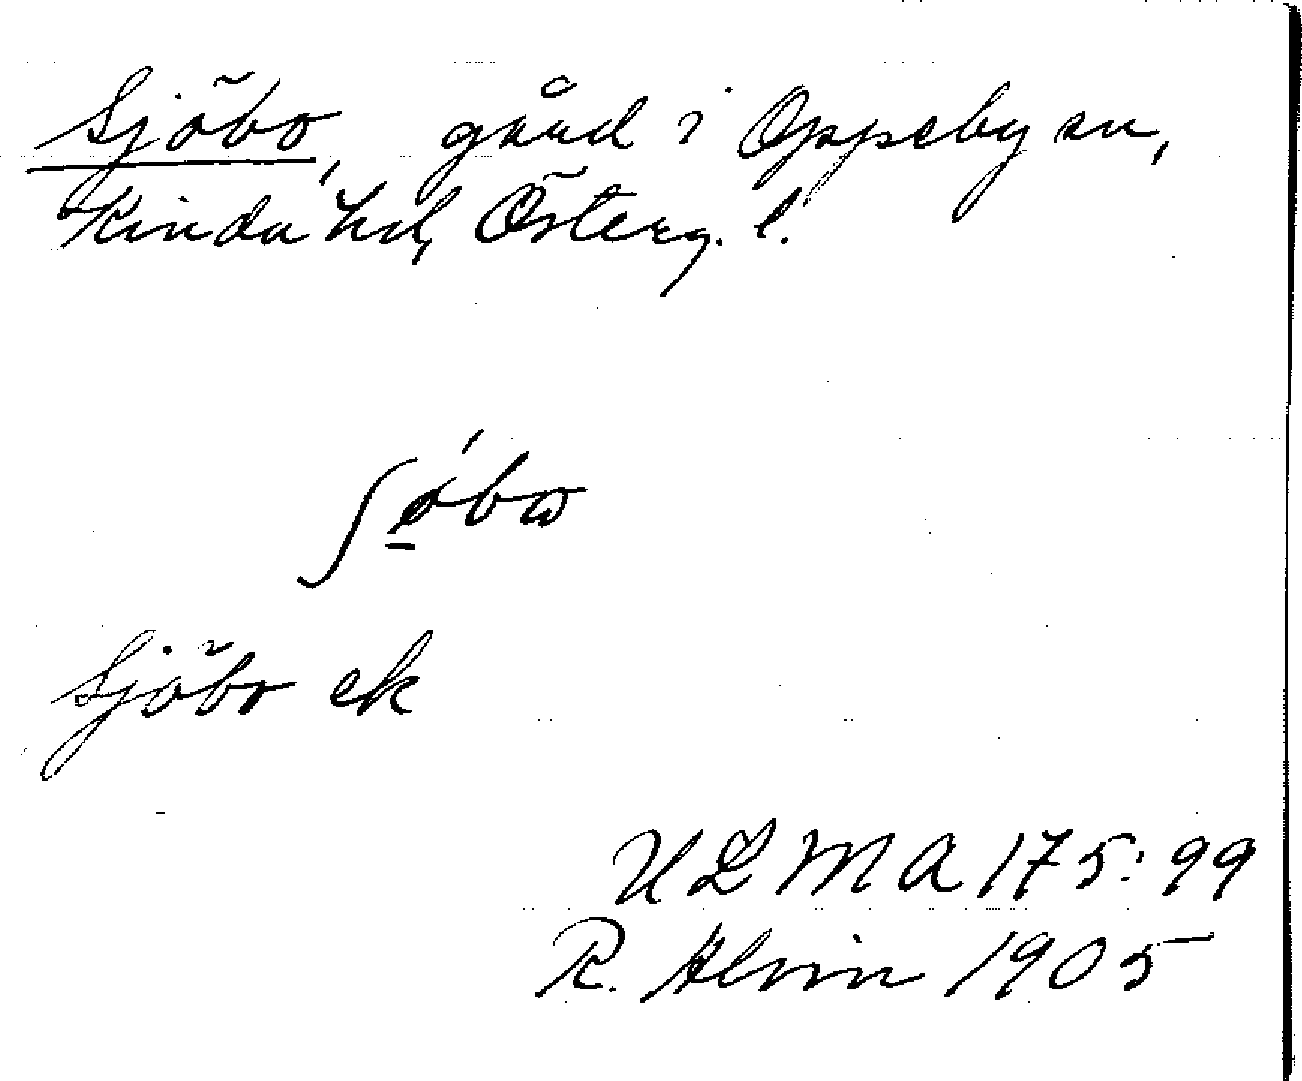 Sjöbo, gård i Oppeby sn,
Kinda hd, Österg. l.
Sjöbo ek
ULMA 175:99
R. Alvin 1905